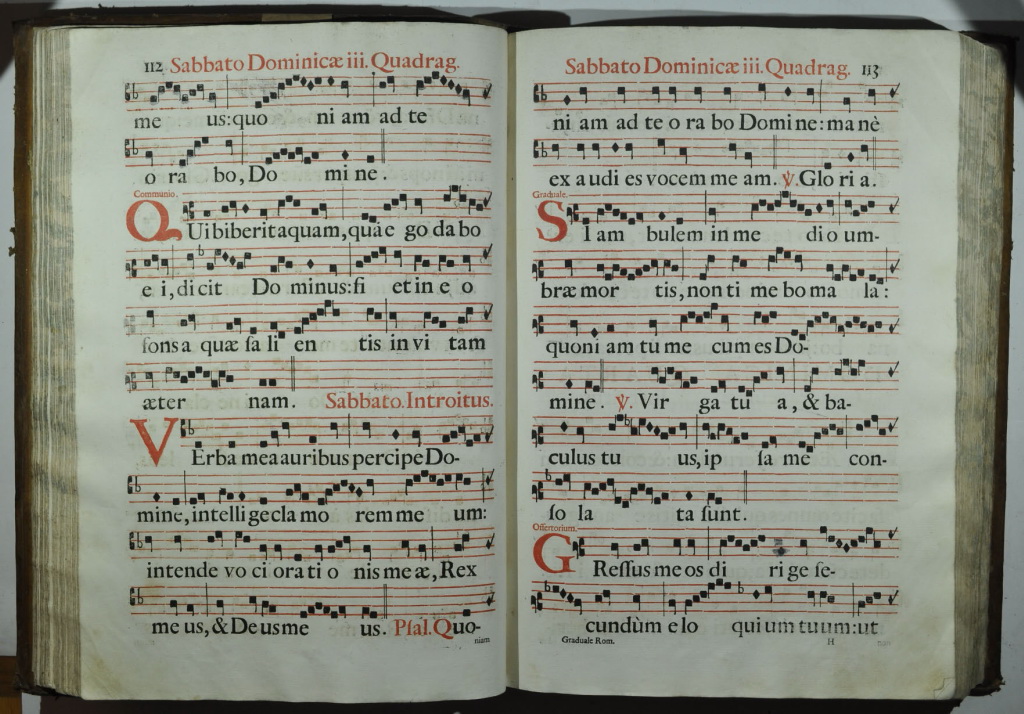 112 Sabbato Dominicæ iii. Quadrag.
me us:quo ni am ad te
o ra bo, Do mi ne.
Communio.
QUi biberit aquam, quàe go da bo
e i, di cit Do minus: fi et in e o
fons a quæ sa li en tis in vi tam
æter nam. Sabbato. Introitus.
VErba mea auribus percipe Do-
mine, intelli ge cla mo rem me um:
intende vo ci ora ti o nis me æ, Rex
me us, & De us me us. Psal. Quo-
niam
Sabbato Dominicæ iii. Quadrag. 113
ni am ad te o ra bo Domi ne: ma nè
ex audi es vocem me am. ℣. Glo ri a.
Graduale.
SI am bulem in me di o um-
bræ mor tis, non ti me bo ma la:
quoni am tu me cum es Do-
mine. ℣. Vir ga tu a, & ba-
culus tu us, ip sa me con-
so la ta sunt.
Offertorium.
GRessus me os di ri ge se-
cundùm e lo qui um tu um: ut
Graduale Rom. H nan